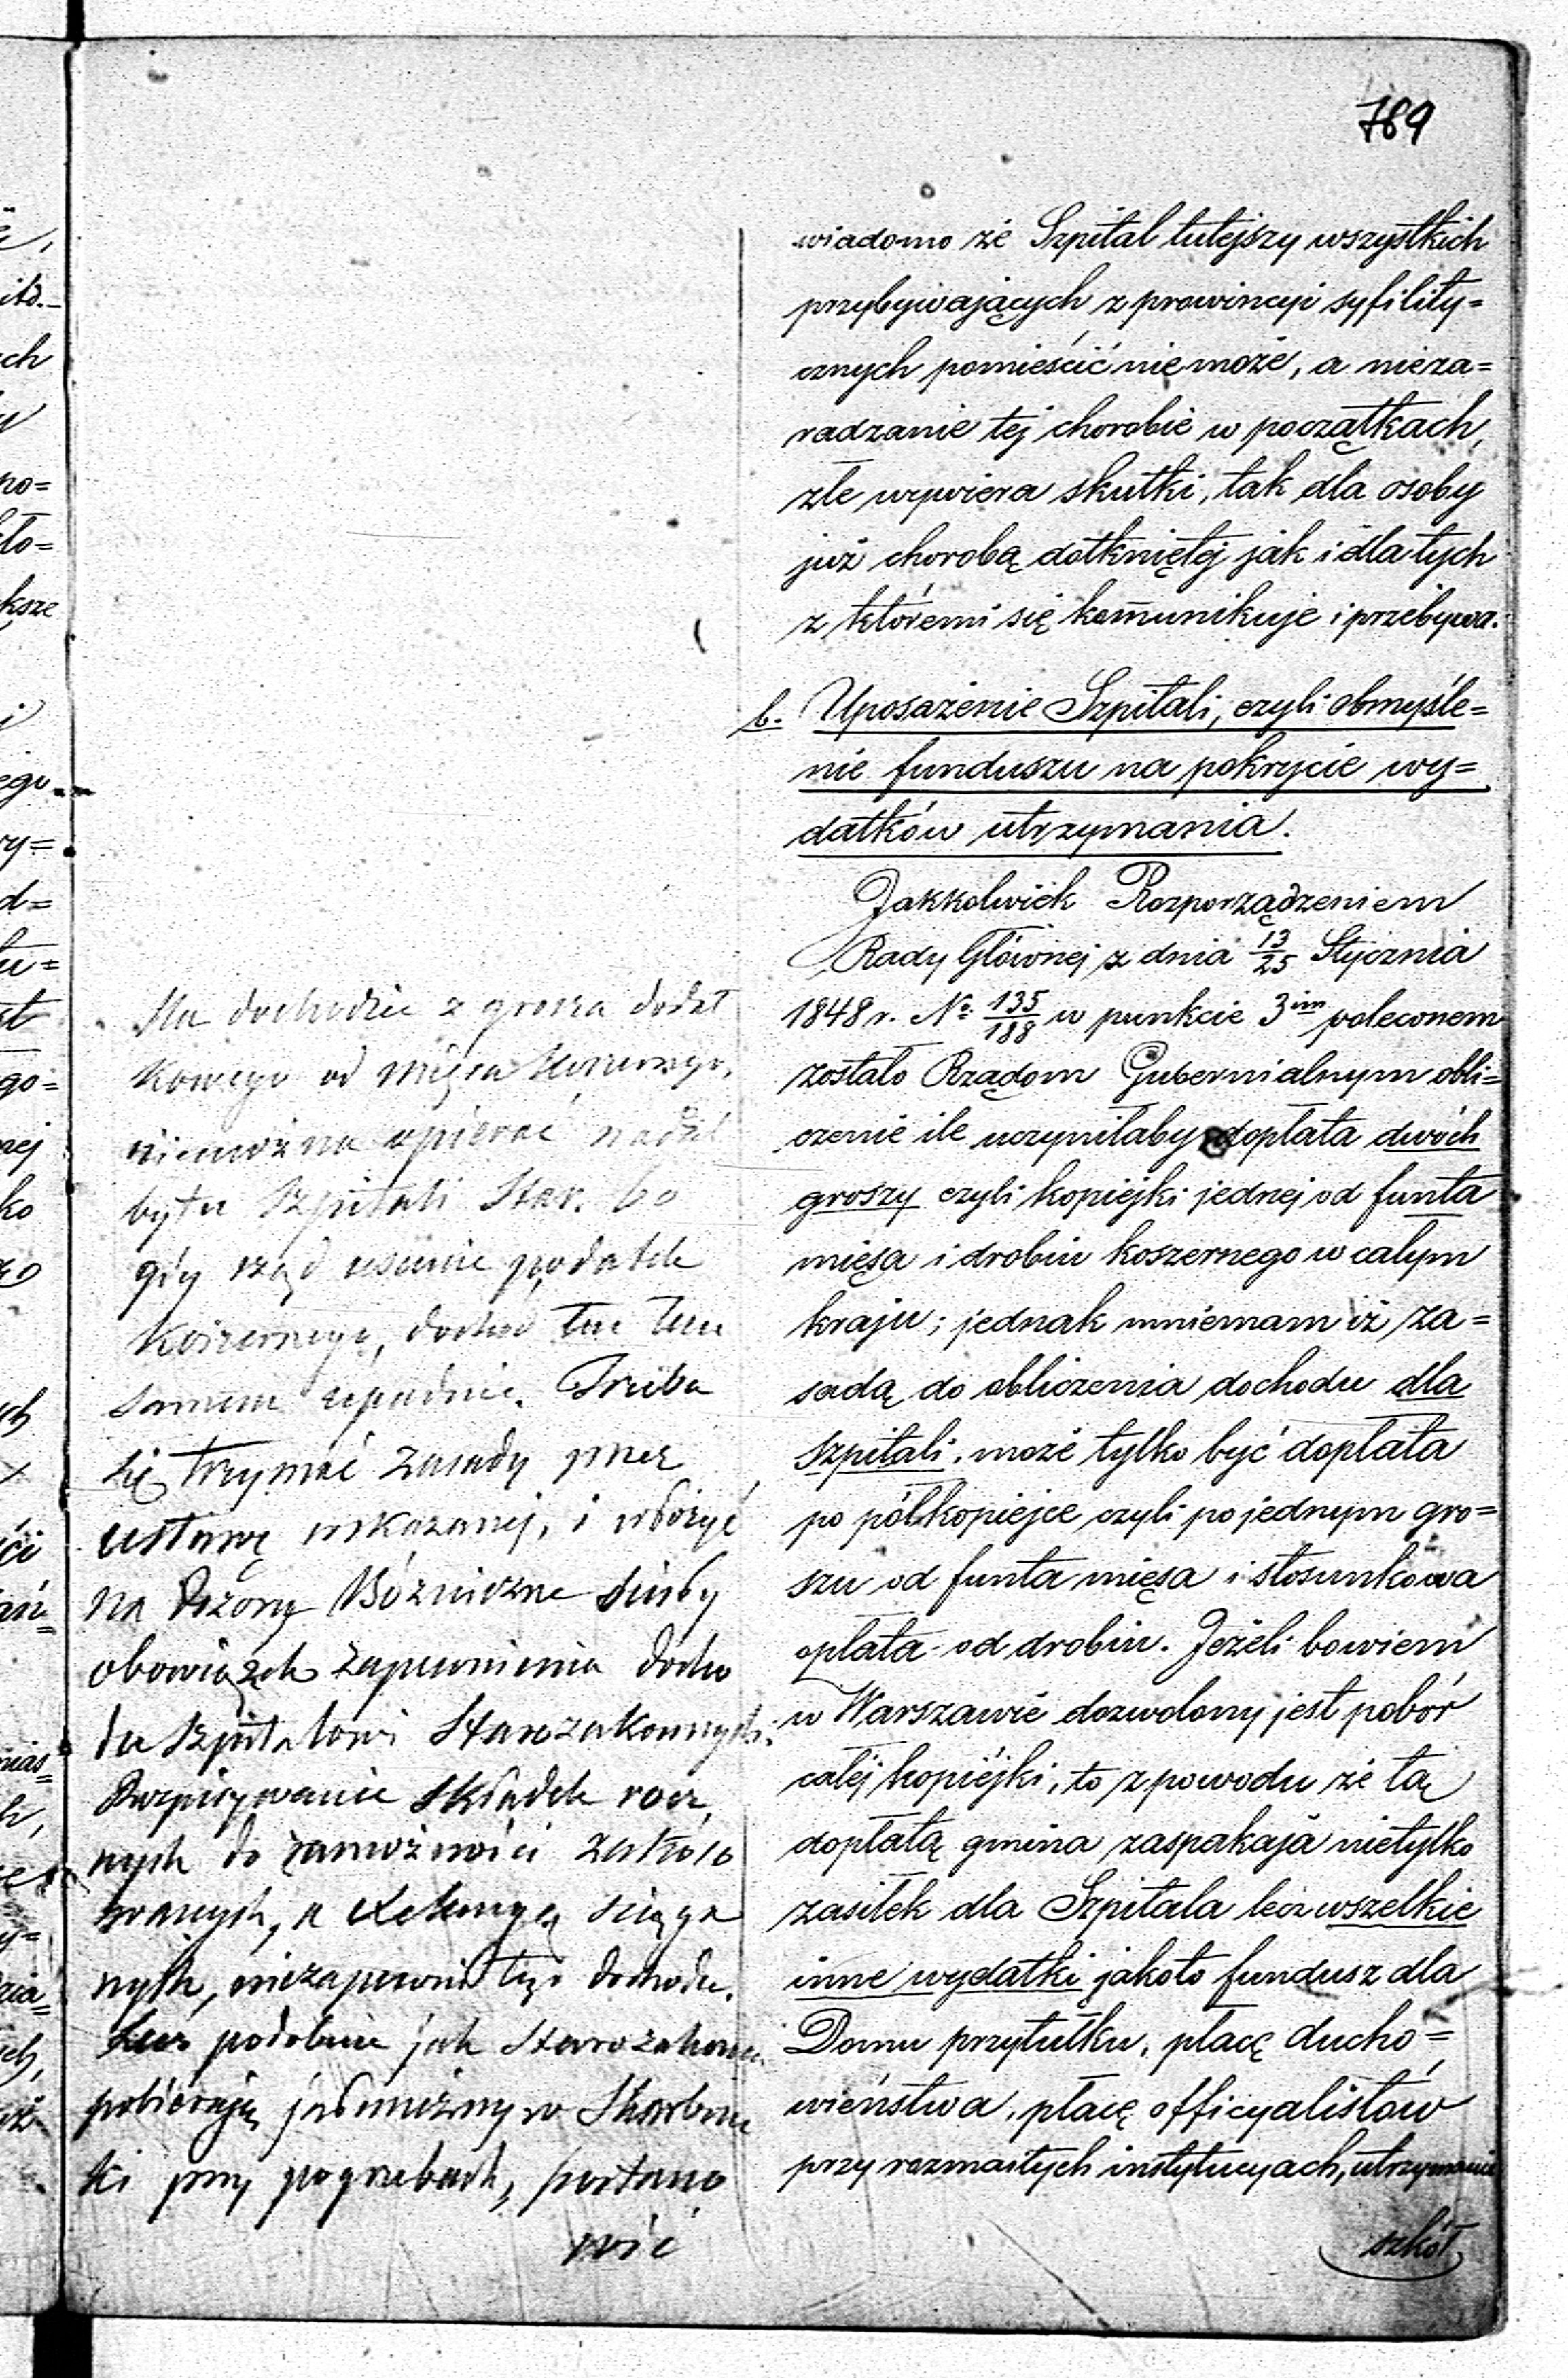 789
wiadomo że Szpital tutejszy wszystkich
przybywających z prowincyi syfility=
cznych pomieścić nie może, a nieza=
radzanie tej chorobie w początkach,
złe wywiera skutki, tak dla osoby
już chorobą dotkniętej jak i dla tych
z któremi się komunikuje i przebywa.
b. Uposażenie Szpitali, czyli obmyśle=
nie funduszu na pokrycie wy=
datków utrzymania.
Jakkolwiek Rozporządzeniem
Rady Głównej z dnia 13/25 Stycznia
1848 r. No 135/188 w punkcie 3im poleconem
zostało Rządom Gubernialnym obli=
czenie ile uczyniłaby dopłata dwóch
groszy czyli kopiejki jednej od funta
mięsa i drobiu koszernego w całym
kraju; jednak mniemam iż za=
sadą do obliczenia dochodu dla
szpitali, może tylko być dopłata
po półkopiejce czyli po jednym gro=
szu od funta mięsa i stosunkowa
opłata od drobiu. Jeżeli bowiem
w Warszawie dozwolony jest pobór
całej kopiejki, to z powodu że tą
dopłatą gmina zaspakaja nietylko
zasiłek dla Szpitala lecz wszelkie
inne wydatki jakoto fundusz dla
Domu przytułku, płacę ducho=
wieństwa, płacę officyalistów
przy rozmaitych instytucyach, utrzymanie
szkół
Na dochodzie z grosza dodat
kowego od mięsa koszernego,
niemożna opierać nadal
bytu Szpitali Star. bo
gdy rząd usunie podatek
koszernego, dochod ten tem
samem upadnie. Trzeba
się trzymać zasady przez
ustawę wskazanej, i włożyć
na Dozory Bóżnicze
obowiązek zapewnienia docho
du Szpitalowi Starozakonnych.
Rozpisywanie składek rocz
nych do zamożności
branych, a ściąga
nych, niezapewni tego dochodu.
Lecz podobnie jak Starozakonni
pobierają jałmużny w Skarbon
ki przy pogrzebach, postano
wić